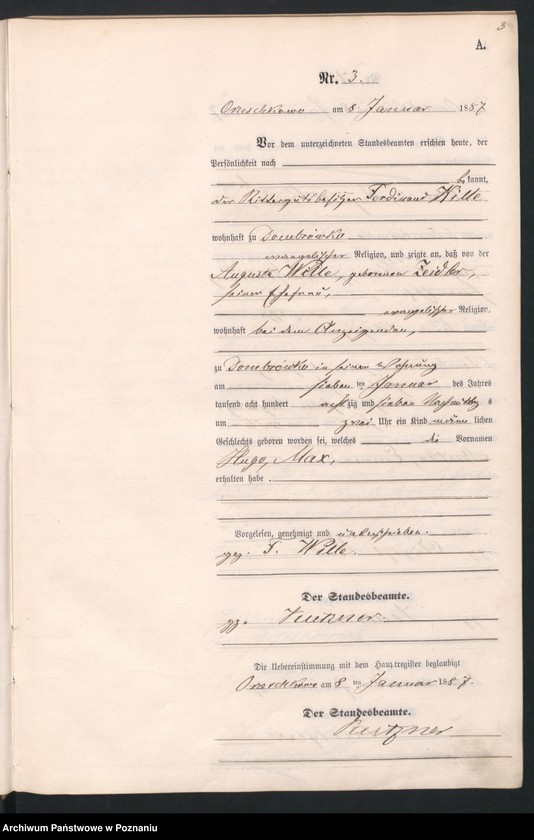 3
A.
Nr. 3.
Orzeschkowo am 8 Januar 1887
Vor dem unterzeichneten Standesbeamten erschien heute, der
Persönlichkeit nach
bekannt,
der Rittergutsbesitzer Ferdinand Wille
wohnhaft zu Dombrówka
evangelischer Religion, und zeigte an, daß von der
Auguste Wille, geborenen Zeidler,
seiner Ehefrau,
evangelischer Religion,
wohnhaft bei dem Anzeigenden,
zu Dombrówka in seiner Wohnung
am sieben ten Januar des Jahres
tausend acht hundert achtzig und sieben Nachmittags
um zwei Uhr ein Kind männlichen
Geschlechts geboren worden sei, welches die Vornamen
Hugo, Max,
erhalten habe.
Vorgelesen, genehmigt und unterschrieben.
gez. F. Wille.
Der Standesbeamte.
gez.
Die Uebereinstimmung mit dem Hauptregister beglaubigt
Orzeschkowo am 8 ten Januar 1887.
Der Standesbeamte.
Archiwum Państwowe w Poznaniu